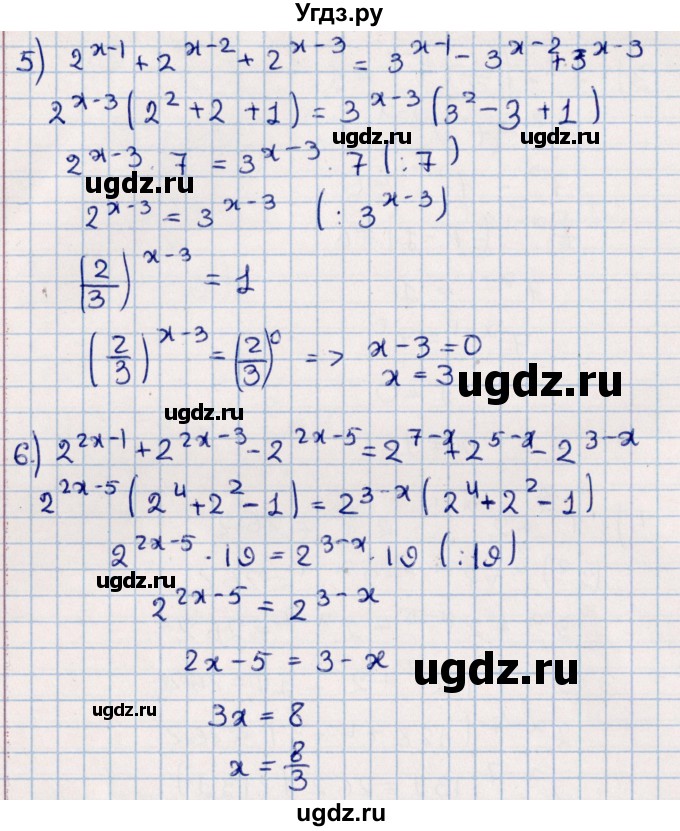 Угдз.ру
5) 2^{x-1} + 2^{x-2} + 2^{x-3} = 3^{x-1} - 3^{x-2} + 3^{x-3}
2^{x-3} (2^2 + 2 + 1) = 3^{x-3} (3^2 - 3 + 1)
ugdz.ru ugdz.ru
2^{x-3} · 7 = 3^{x-3} · 7 (:7)
ugdz.ru
2^{x-3} = 3^{x-3} (: 3^{x-3})
(2/3)^{x-3} = 1
(2/3)^{x-3} = (2/3)^0 => x - 3 = 0
x = 3
ugdz.ru
ugdz.ru
6.) 2^{2x-1} + 2^{2x-3} - 2^{2x-5} = 2^{7-x} + 2^{5-x} - 2^{3-x}
ugdz.ru
2^{2x-5} (2^4 + 2^2 - 1) = 2^{3-x} (2^4 + 2^2 - 1)
ugdz.ru
2^{2x-5} · 19 = 2^{3-x} · 19 (:19)
ugdz.ru
2^{2x-5} = 2^{3-x}
2x - 5 = 3 - x
ugdz.ru
ugdz.ru
3x = 8
x = 8/3
ugdz.ru